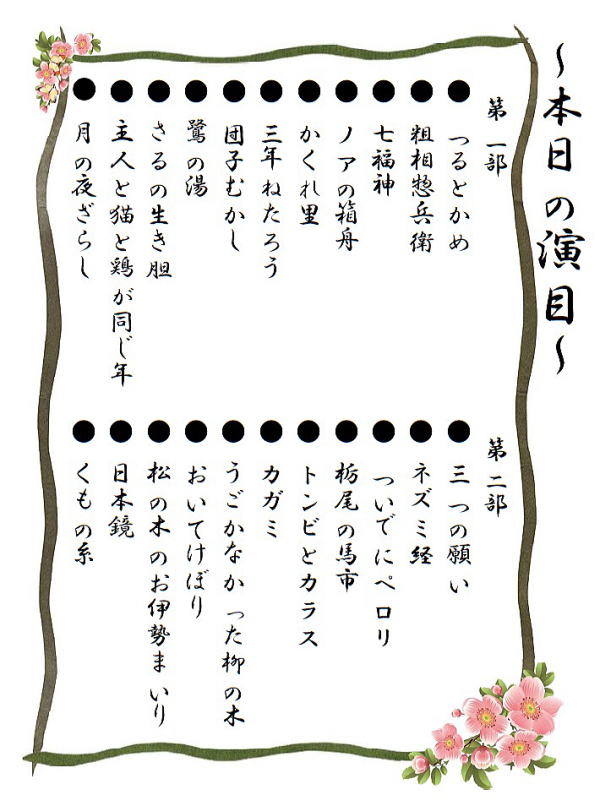 ～本日の演目～
第一部
●つるとかめ
●粗相惣兵衛
●七福神
●ノアの箱舟
●かくれ里
●三年ねたろう
●団子むかし
●鷺の湯
●さるの生き胆
●主人と猫と鶏が同じ年
●月の夜ざらし
第二部
●三つの願い
●ネズミ経
●ついでにペロリ
●栃尾の馬市
●トンビとカラス
●カガミ
●うごかなかった柳の木
●おいてけぼり
●松の木のお伊勢まいり
●日本鏡
●くもの糸